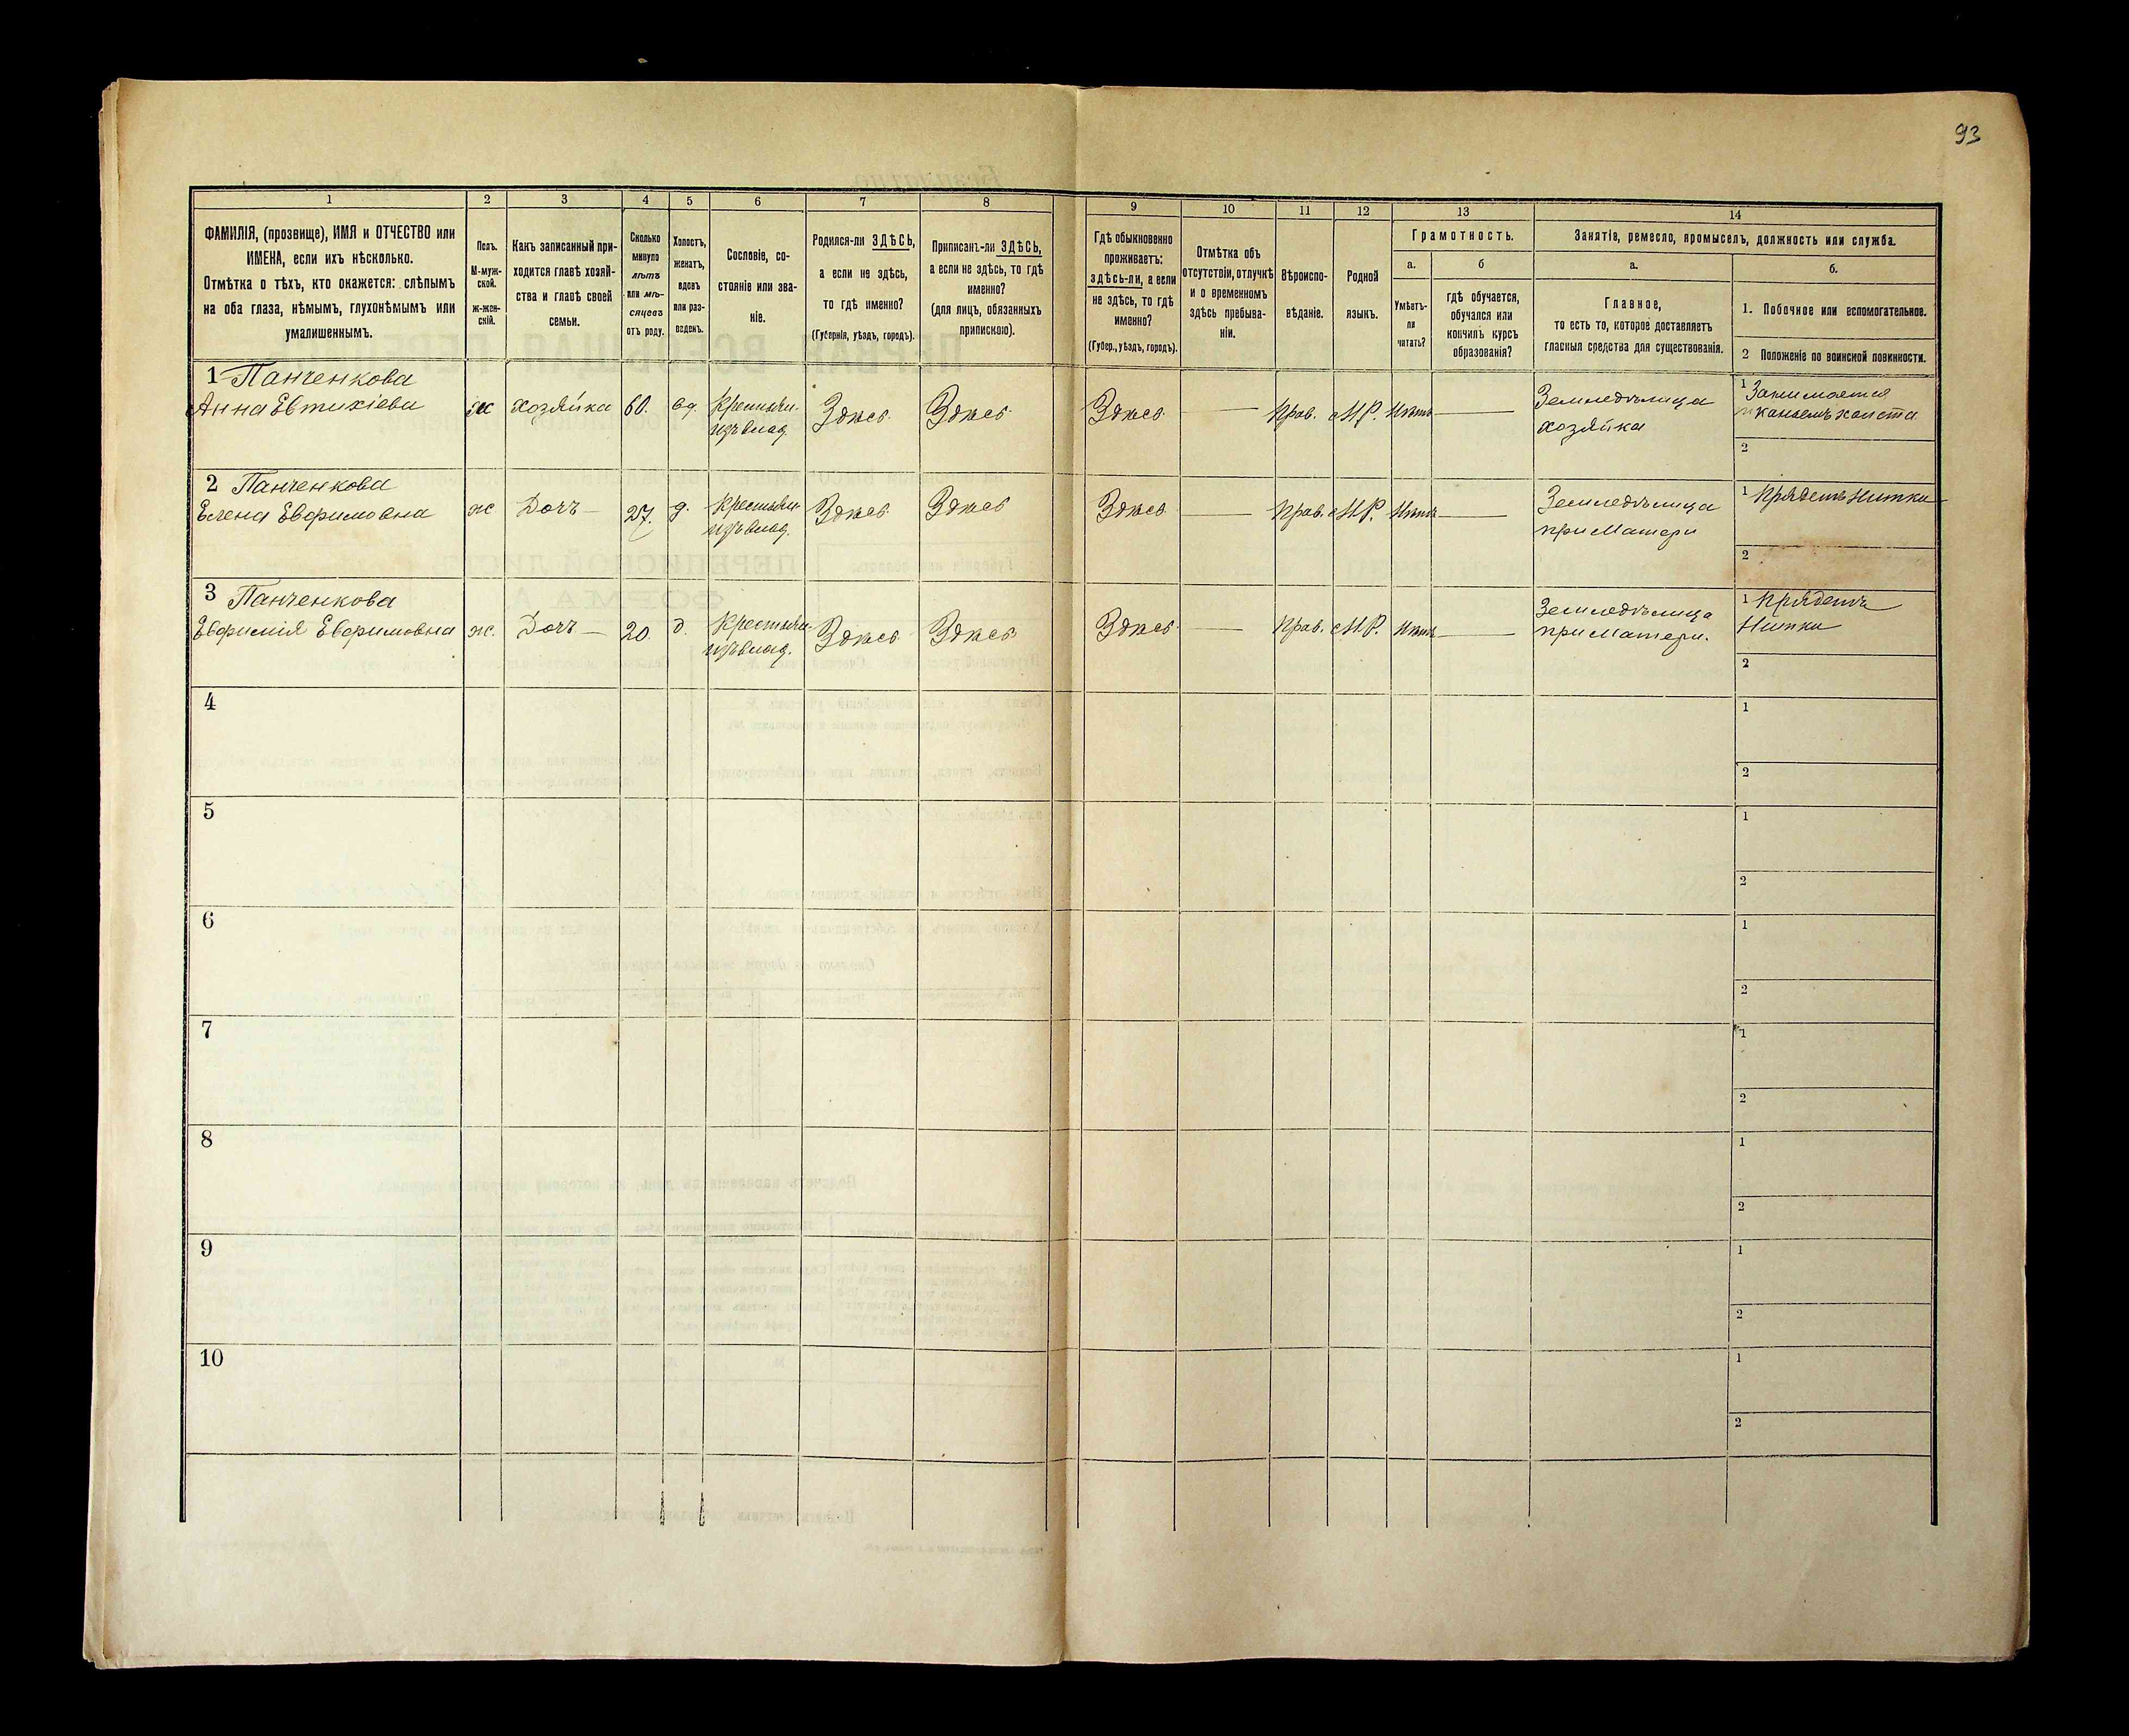 93
1 2 3 4 5 6 7 8 9 10 11 12 13 14
ФАМИЛІЯ, (прозвище), ИМЯ и ОТЧЕСТВО или
ИМЕНА, если ихъ нѣсколько.
Отмѣтка о тѣхъ, кто окажется: слѣпымъ
на оба глаза, нѣмымъ, глухонѣмымъ или
умалишеннымъ.
Полъ.
М-муж-
ской.
ж-жен-
скій.
Какъ записанный при-
ходится главѣ хозяй-
ства и главѣ своей
семьи.
Сколько
минуло
лѣтъ
или мѣ-
сяцевъ
отъ роду.
Холостъ,
женатъ,
вдовъ
или раз-
веденъ.
Сословіе, со-
стояніе или зва-
ніе.
Родился-ли ЗДѢСЬ,
а если не здѣсь,
то гдѣ именно?
(Губернія, уѣздъ, городъ).
Приписанъ-ли ЗДѢСЬ,
а если не здѣсь, то гдѣ
именно?
(для лицъ, обязанныхъ
припискою).
Гдѣ обыкновенно
проживаетъ:
здѣсь-ли, а если
не здѣсь, то гдѣ
именно?
(Губер., уѣздъ, городъ).
Отмѣтка объ
отсутствіи, отлучкѣ
и о временномъ
здѣсь пребыва-
ніи.
Вѣроиспо-
вѣданіе.
Родной
языкъ.
Грамотность.
а.
Умѣетъ-
ли
читать?
б
гдѣ обучается,
обучался или
кончилъ курсъ
образованія?
Занятіе, ремесло, промыселъ, должность или служба.
а.
Главное,
то есть то, которое доставляетъ
главныя средства для существованія.
б.
1. Побочное или вспомогательное.
2 Положеніе по воинской повинности.
1 Панченкова
Анна Евтихіева
ж
хозяйка
60.
вд.
Крестьян.
изъ влад.
Здѣсь
Здѣсь
Здѣсь
—
Прав.
М.Р.
Нѣтъ
—
Земледѣлица
хозяйка
1 Занимается
тканьемъ холста
2
2 Панченкова
Елена Ефимовна
ж
Дочь —
27.
д.
Крестьян.
изъ влад.
Здѣсь
Здѣсь
Здѣсь
—
Прав.
М.Р.
Нѣтъ
—
Земледѣлица
при Матери
1 Прядетъ Нитки
2
3 Панченкова
Евфимія Ефимовна
ж.
Дочь —
20
д.
Крестьян.
изъ влад.
Здѣсь
Здѣсь
Здѣсь
—
Прав.
М.Р.
Нѣтъ
—
Земледѣлица
при Матери.
1 Прядетъ
Нитки
2
4
1
2
5
1
2
6
1
2
7
1
2
8
1
2
9
1
2
10
1
2